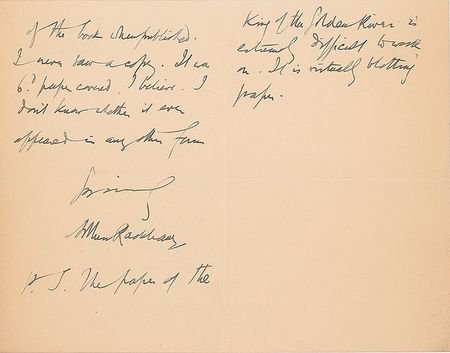 of the book when published.
I never saw a copy. It was
6d paper covered, I believe. I
don't know whether it ever
appeared in any other form
Sincerely
Arthur Rackham
P.S. The paper of the
King of the Golden River is
extremely difficult to work
on. It is virtually blotting
paper.